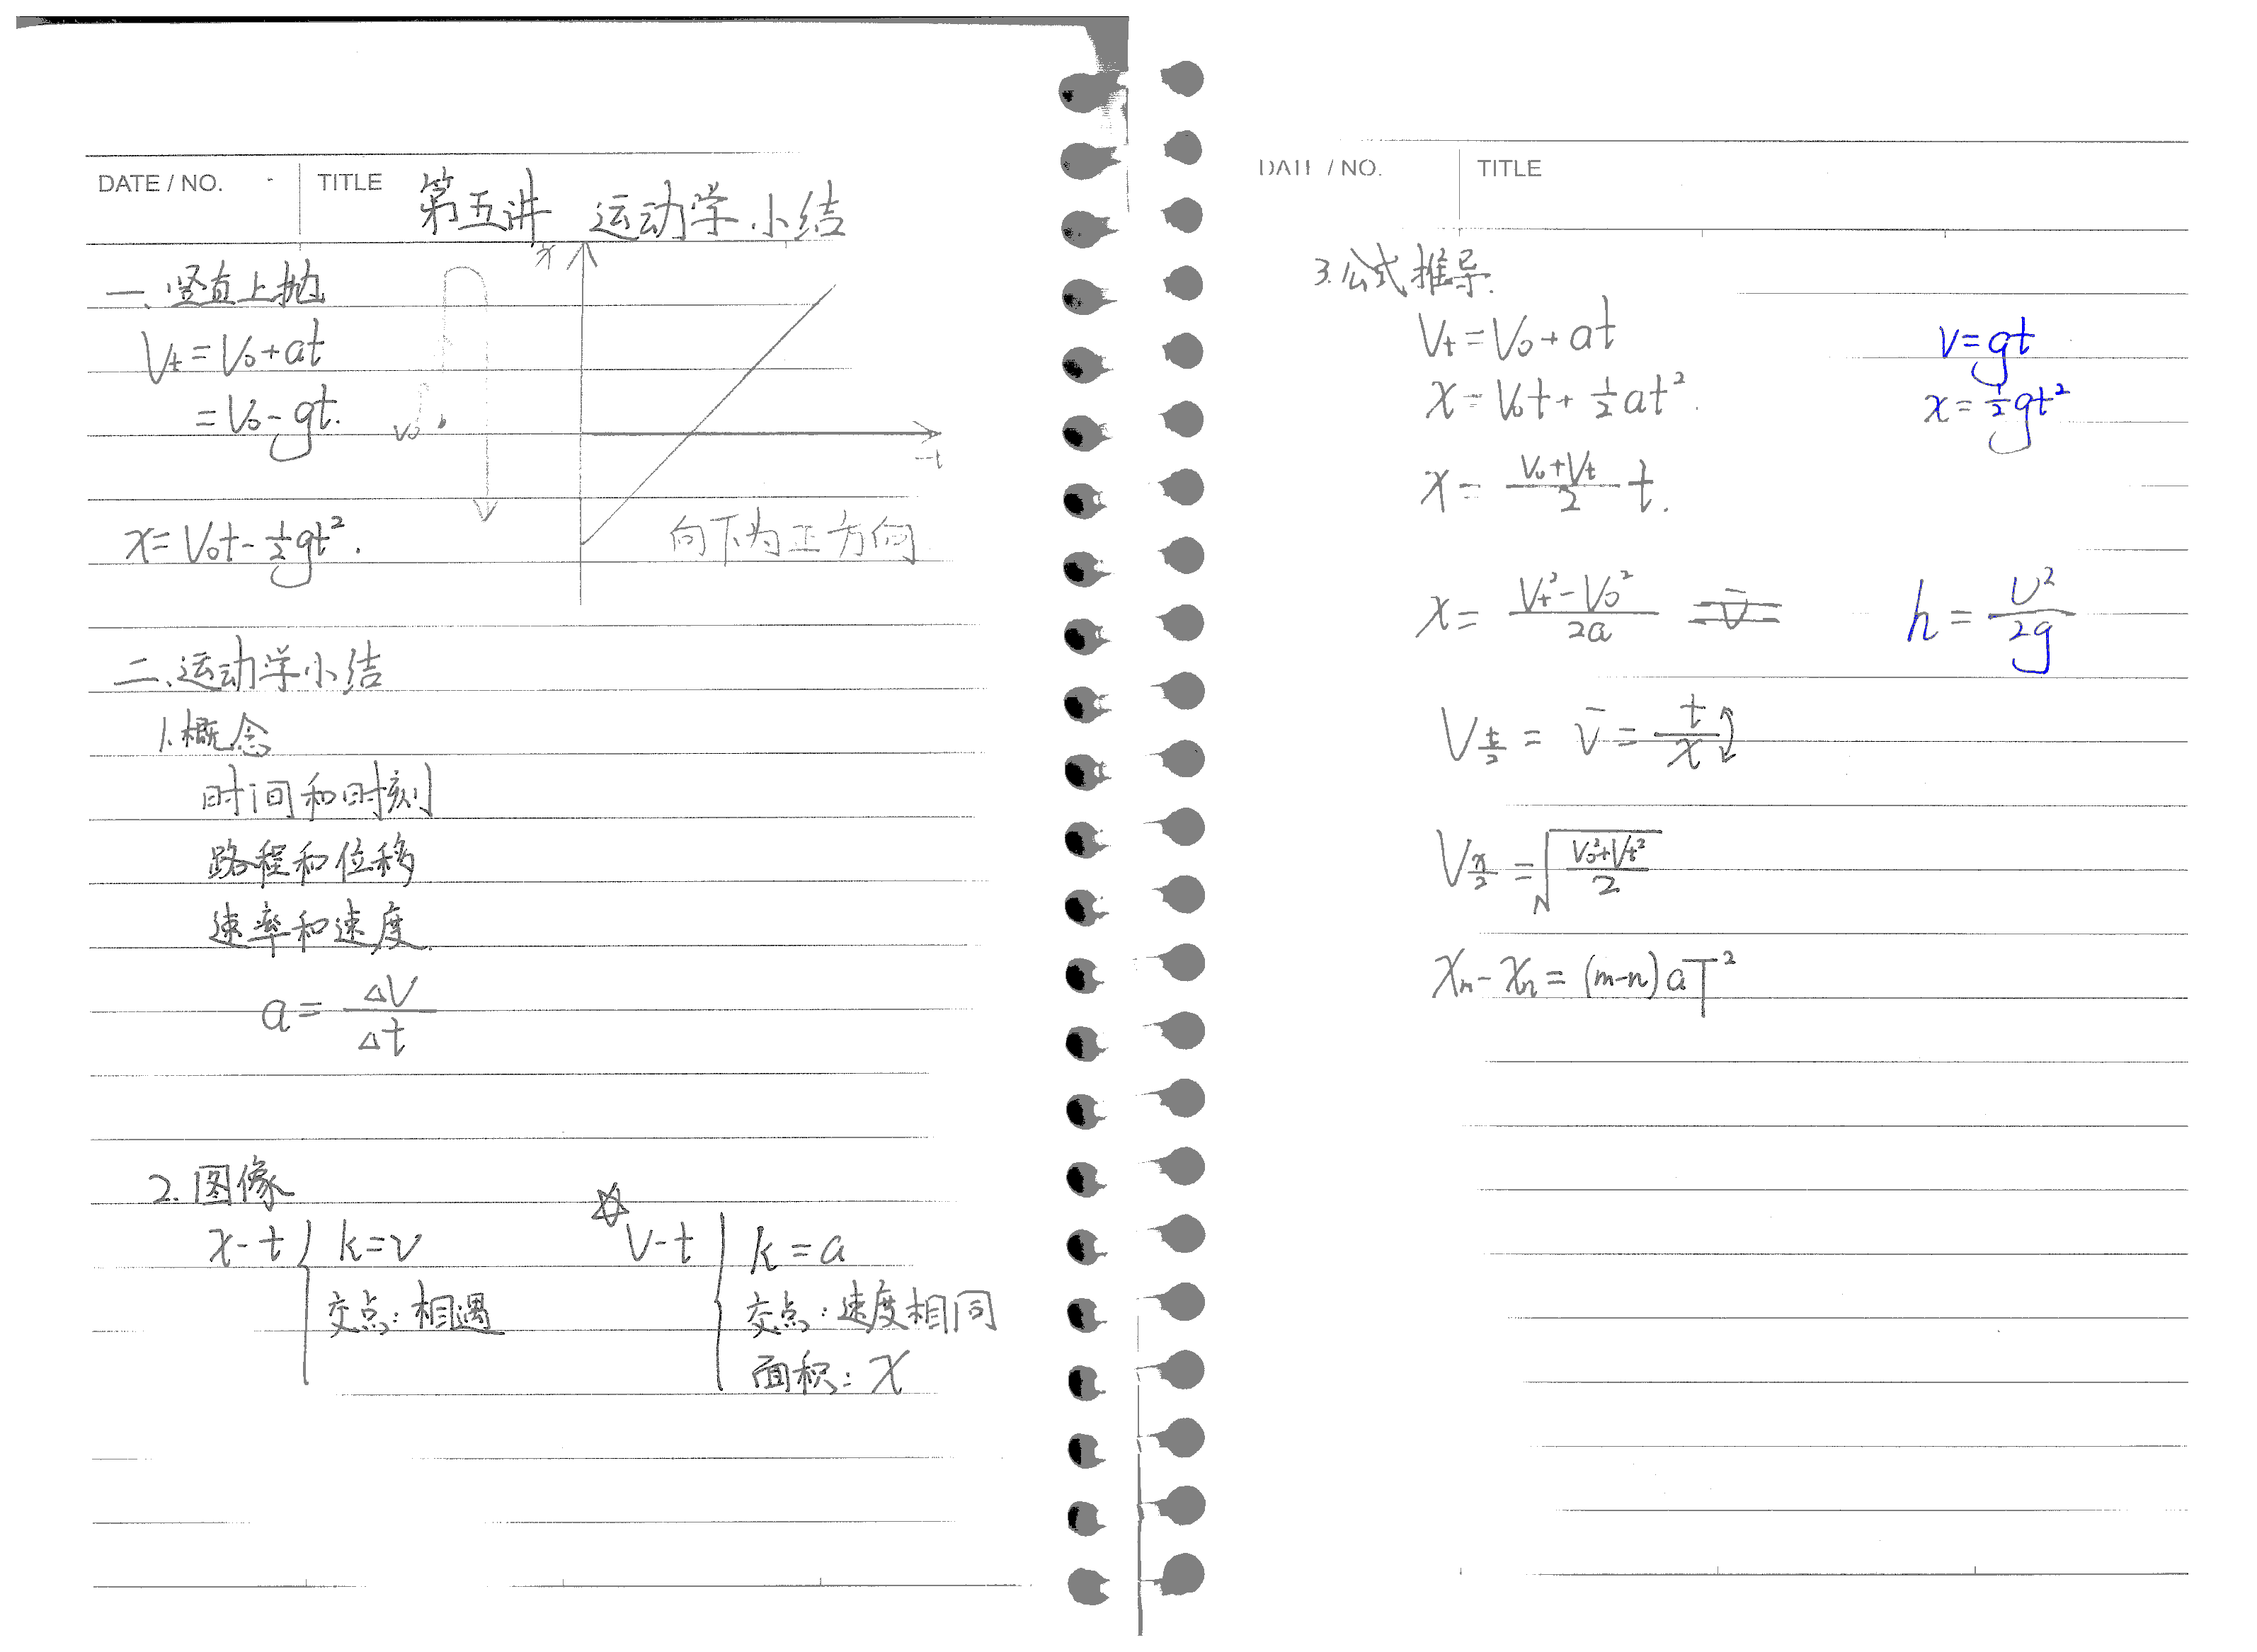 DATE / NO.
TITLE 第五讲 运动学小结
一、竖直上抛
Vt = V0 + at
= V0 - gt.
x = V0t - 1/2 gt².
V0
x
t
向下为正方向
二、运动学小结
1. 概念
时间和时刻
路程和位移
速率和速度.
a = ΔV/Δt
2. 图像
x-t { k=v
交点: 相遇
☆ V-t { k=a
交点: 速度相同
面积: x
DATE / NO.
TITLE
3. 公式推导.
Vt = V0 + at
v = gt
x = V0t + 1/2 at².
x = 1/2 gt²
x = (V0+Vt)/2 t.
x = (Vt²-V0²)/2a
h = v²/2g
V t/2 = v̄ = t/x
V x/2 = √((V0²+Vt²)/2)
xm - xn = (m-n)aT²